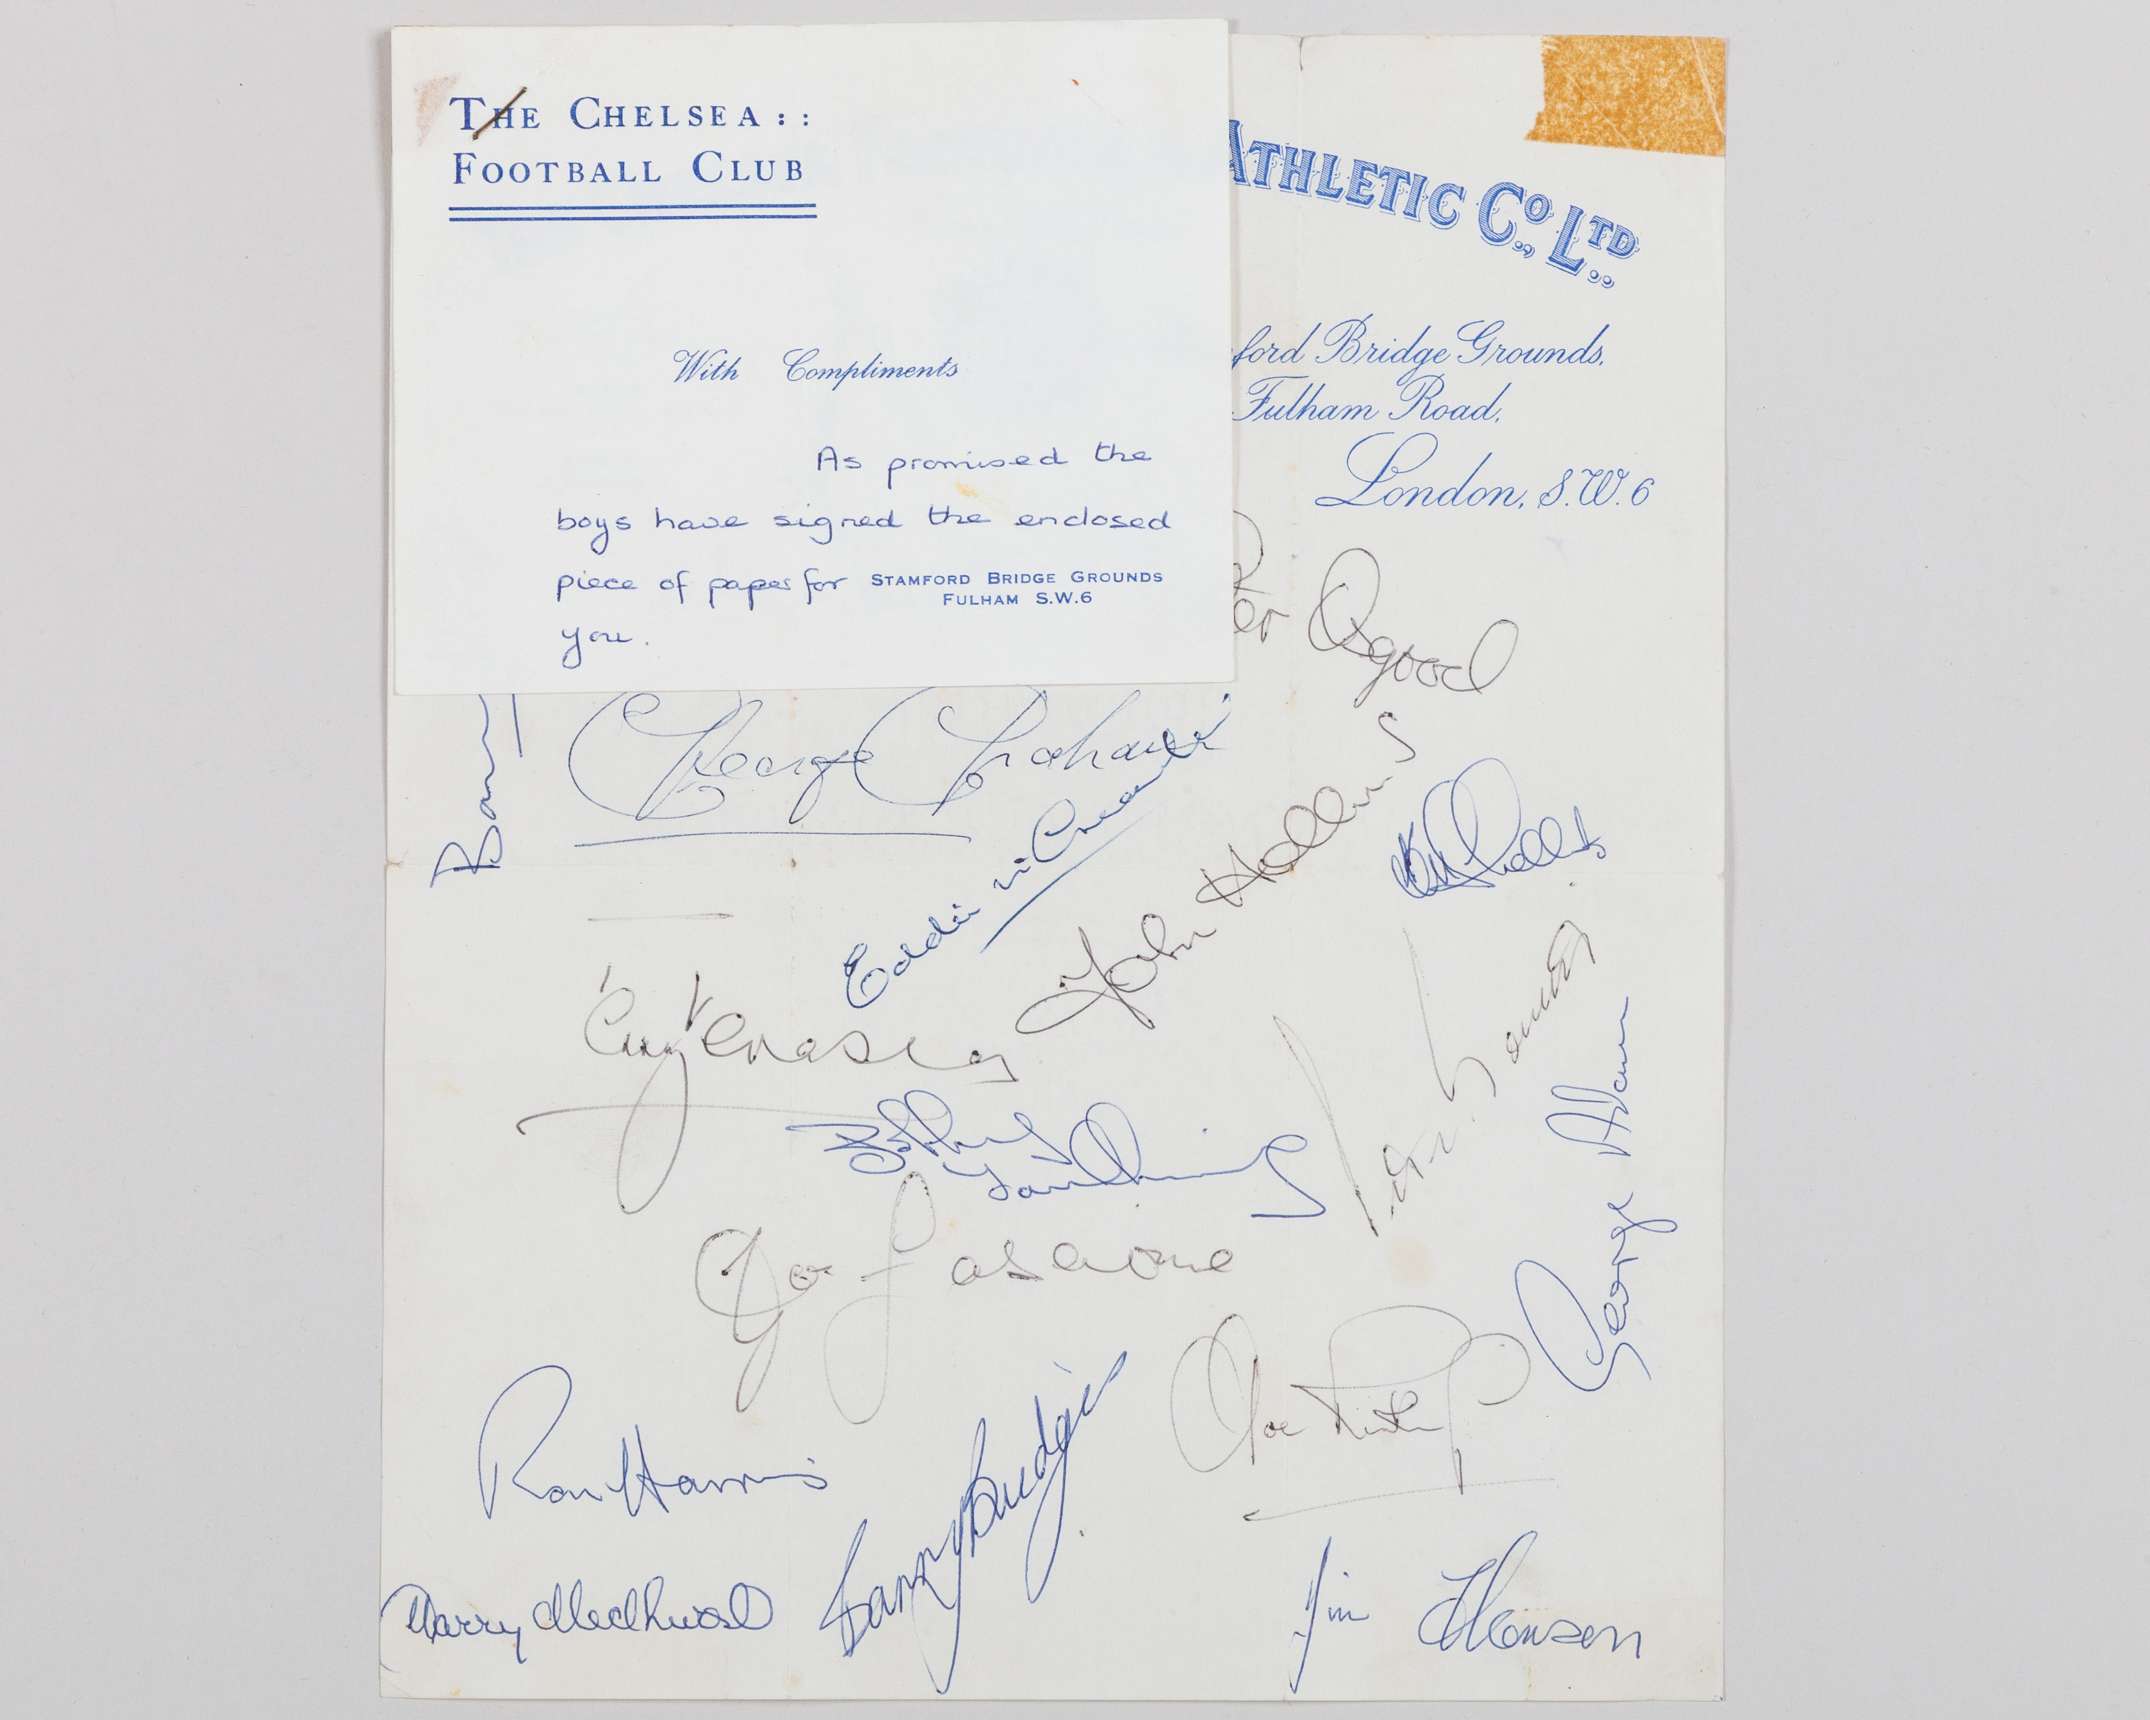 THE CHELSEA : :
FOOTBALL CLUB
With Compliments
As promised the
boys have signed the enclosed
piece of paper for
you.
STAMFORD BRIDGE GROUNDS
FULHAM S.W.6
ATHLETIC CO., LTD.
ford Bridge Grounds,
Fulham Road,
London, S.W.6
er Osgood
George Graham
Eddie McCreadie
John Hollins
Barry
Joe Fascione
George Adam
Ron Harris
Barry Bridges
Harry Medhurst
Jim Thomson